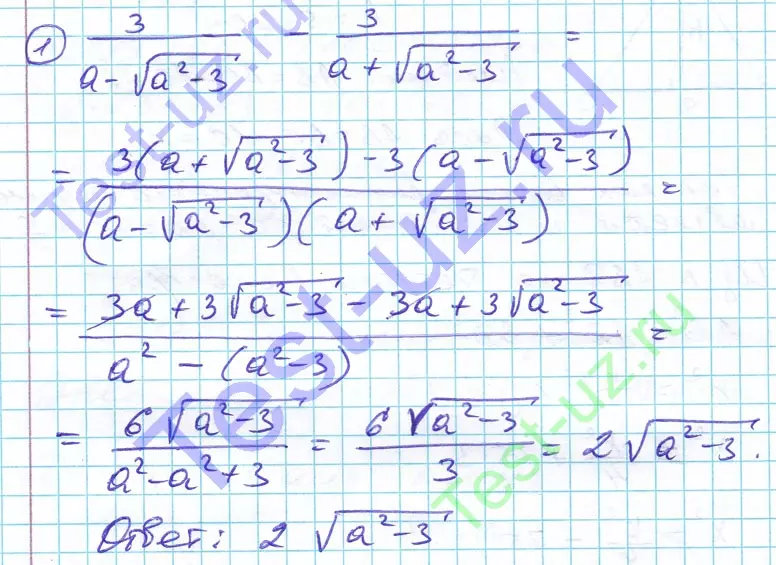 ① 3/(a-√(a²-3)) - 3/(a+√(a²-3)) =
= (3(a+√(a²-3))-3(a-√(a²-3)))/((a-√(a²-3))(a+√(a²-3))) =
= (3a+3√(a²-3)-3a+3√(a²-3))/(a²-(a²-3)) =
= 6√(a²-3)/(a²-a²+3) = 6√(a²-3)/3 = 2√(a²-3).
Ответ: 2√(a²-3)
Test-uz.ru
Test-uz.ru
Test-uz.ru